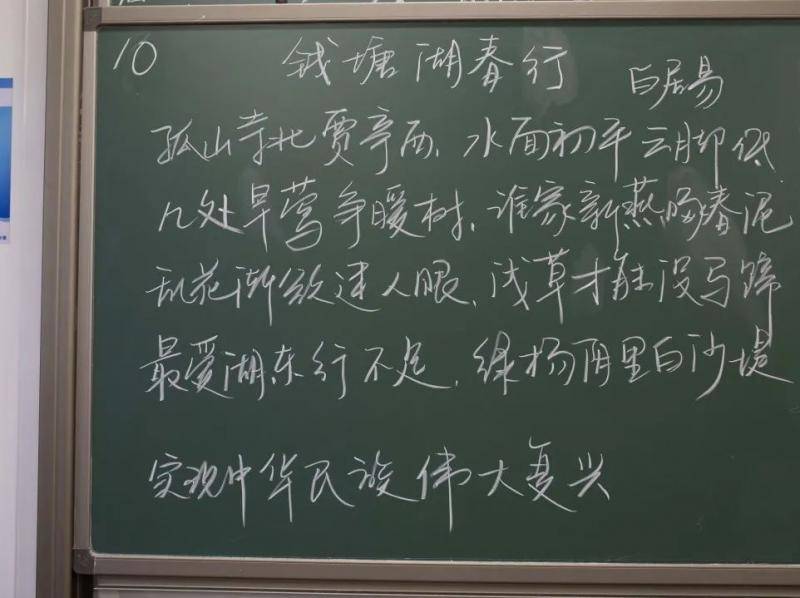 10 钱塘湖春行 白居易
孤山寺北贾亭西，水面初平云脚低
几处早莺争暖树，谁家新燕啄春泥
乱花渐欲迷人眼，浅草才能没马蹄
最爱湖东行不足，绿杨阴里白沙堤
实现中华民族伟大复兴